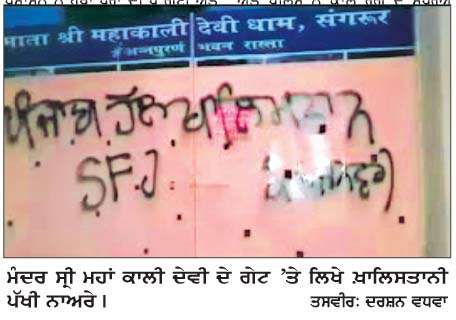 माता श्री महाकाली देवी धाम, संगरूर
अन्नपुर्णा भवन रास्ता
ਪੰਜਾਬ ਹੱਲ ਖਾਲਿਸਤਾਨ
SFJ
ਮੰਦਰ ਸ੍ਰੀ ਮਹਾਂ ਕਾਲੀ ਦੇਵੀ ਦੇ ਗੇਟ ’ਤੇ ਲਿਖੇ ਖ਼ਾਲਿਸਤਾਨੀ
ਪੱਖੀ ਨਾਅਰੇ। ਤਸਵੀਰ: ਦਰਸ਼ਨ ਵਧਵਾ